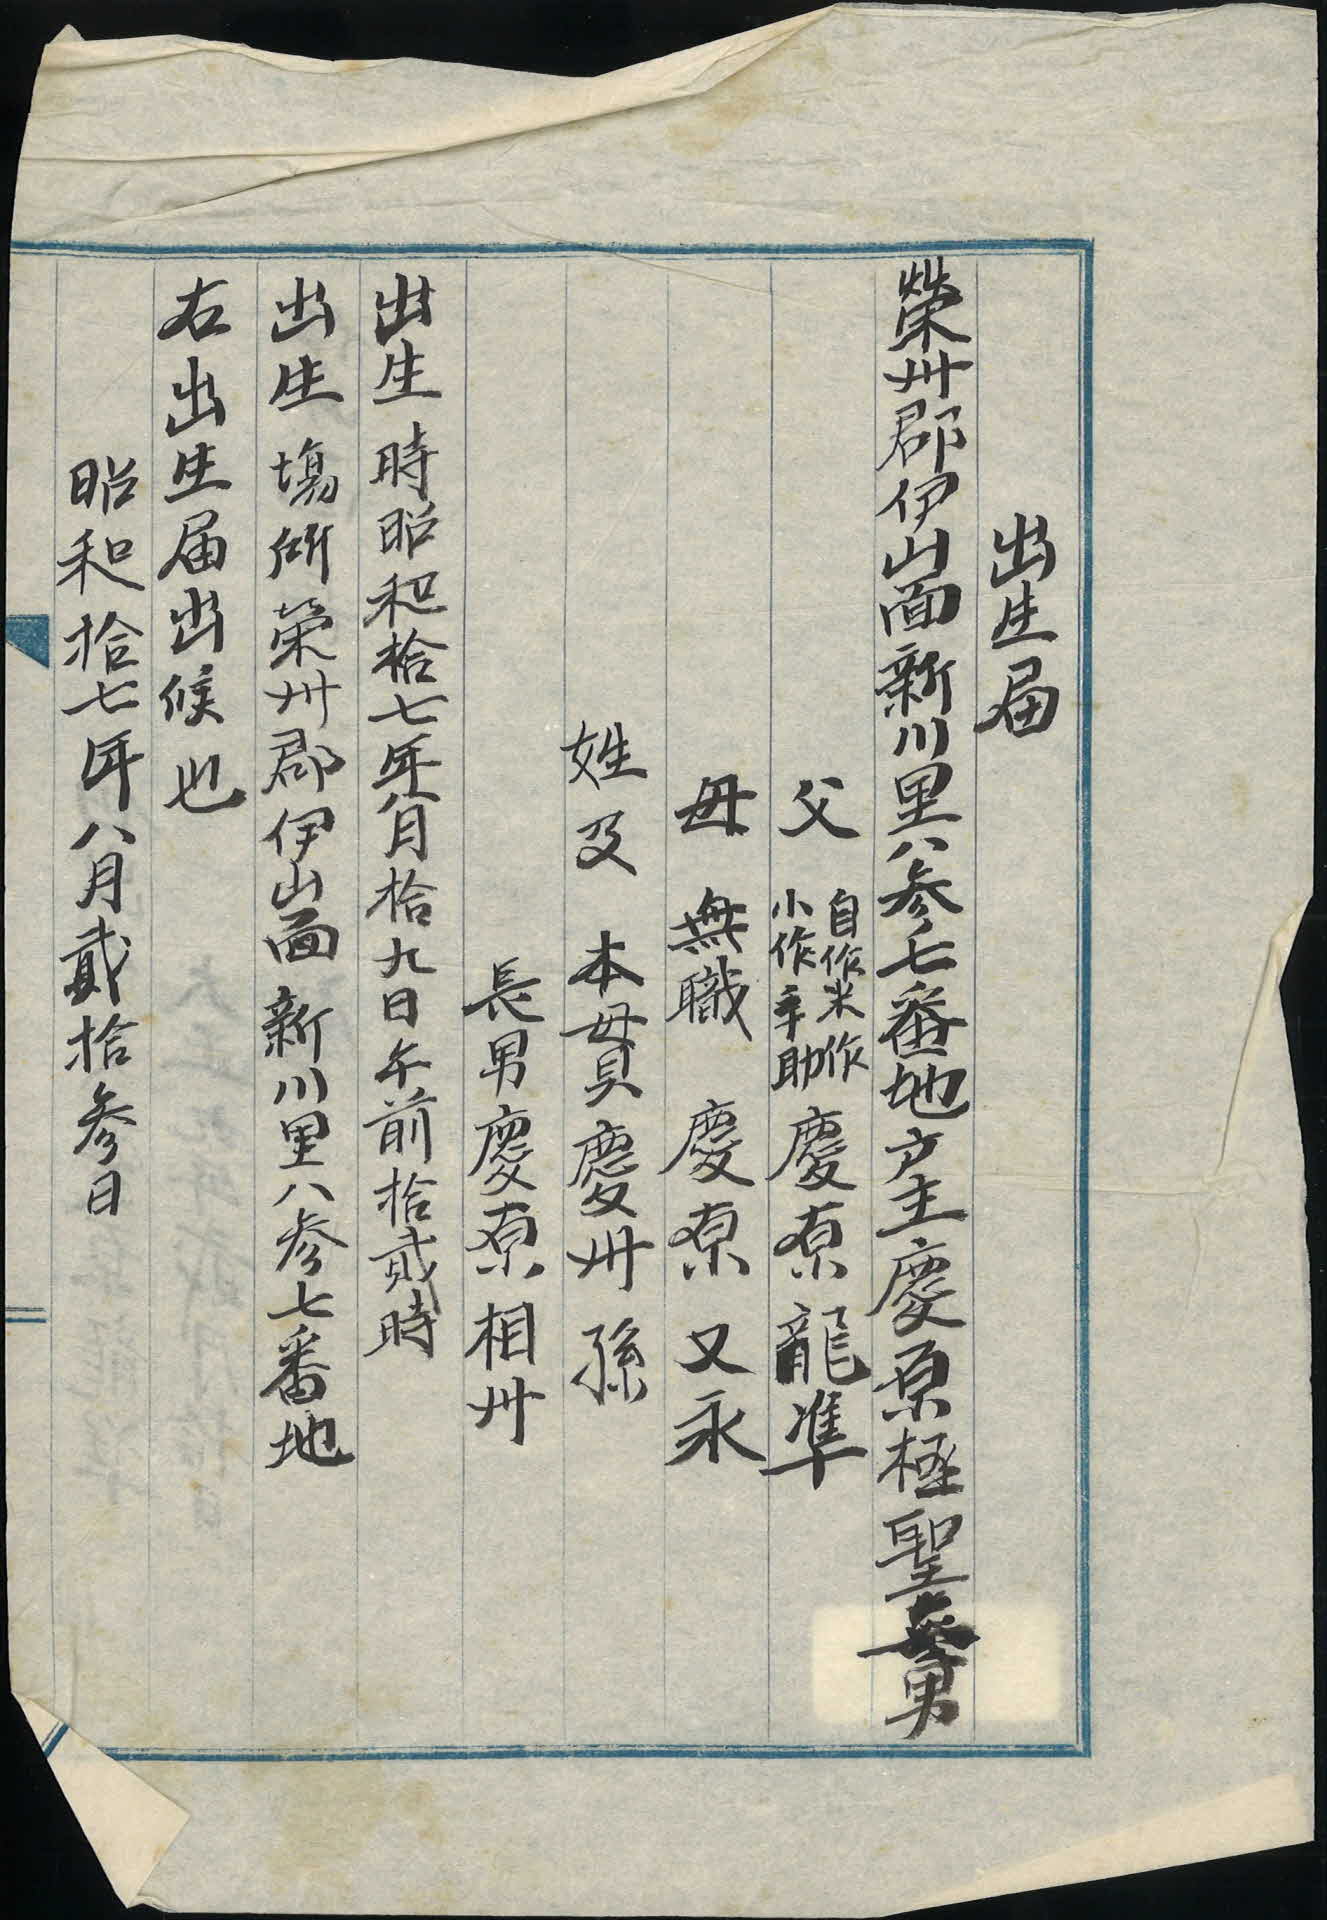 出生届
榮州郡伊山面新川里八参七番地戸主慶原極聖男
父 自作米作
小作辛助 慶原龍準
母 無職 慶原又永
姓及 本貫慶州孫
長男慶原相州
出生時昭和拾七年八月拾九日午前拾貳時
出生場所榮州郡伊山面新川里八参七番地
右出生届出候也
昭和拾七年八月貳拾参日